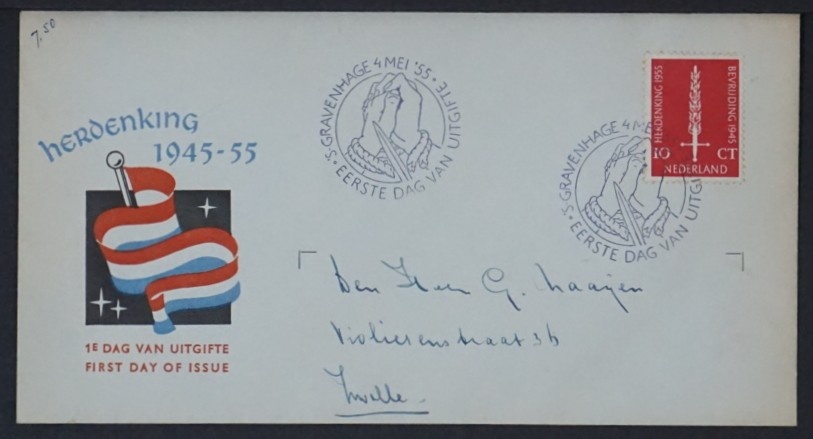 7.50
herdenking
1945-55
1E DAG VAN UITGIFTE
FIRST DAY OF ISSUE
'S-GRAVENHAGE 4 MEI '55 • EERSTE DAG VAN UITGIFTE •
'S-GRAVENHAGE 4 MEI
EERSTE DAG VAN UITGI
HERDENKING 1955
BEVRIJDING 1945
10 CT
NEDERLAND
Den Heer G. Haayen
Violierenstraat 36
Zwolle.